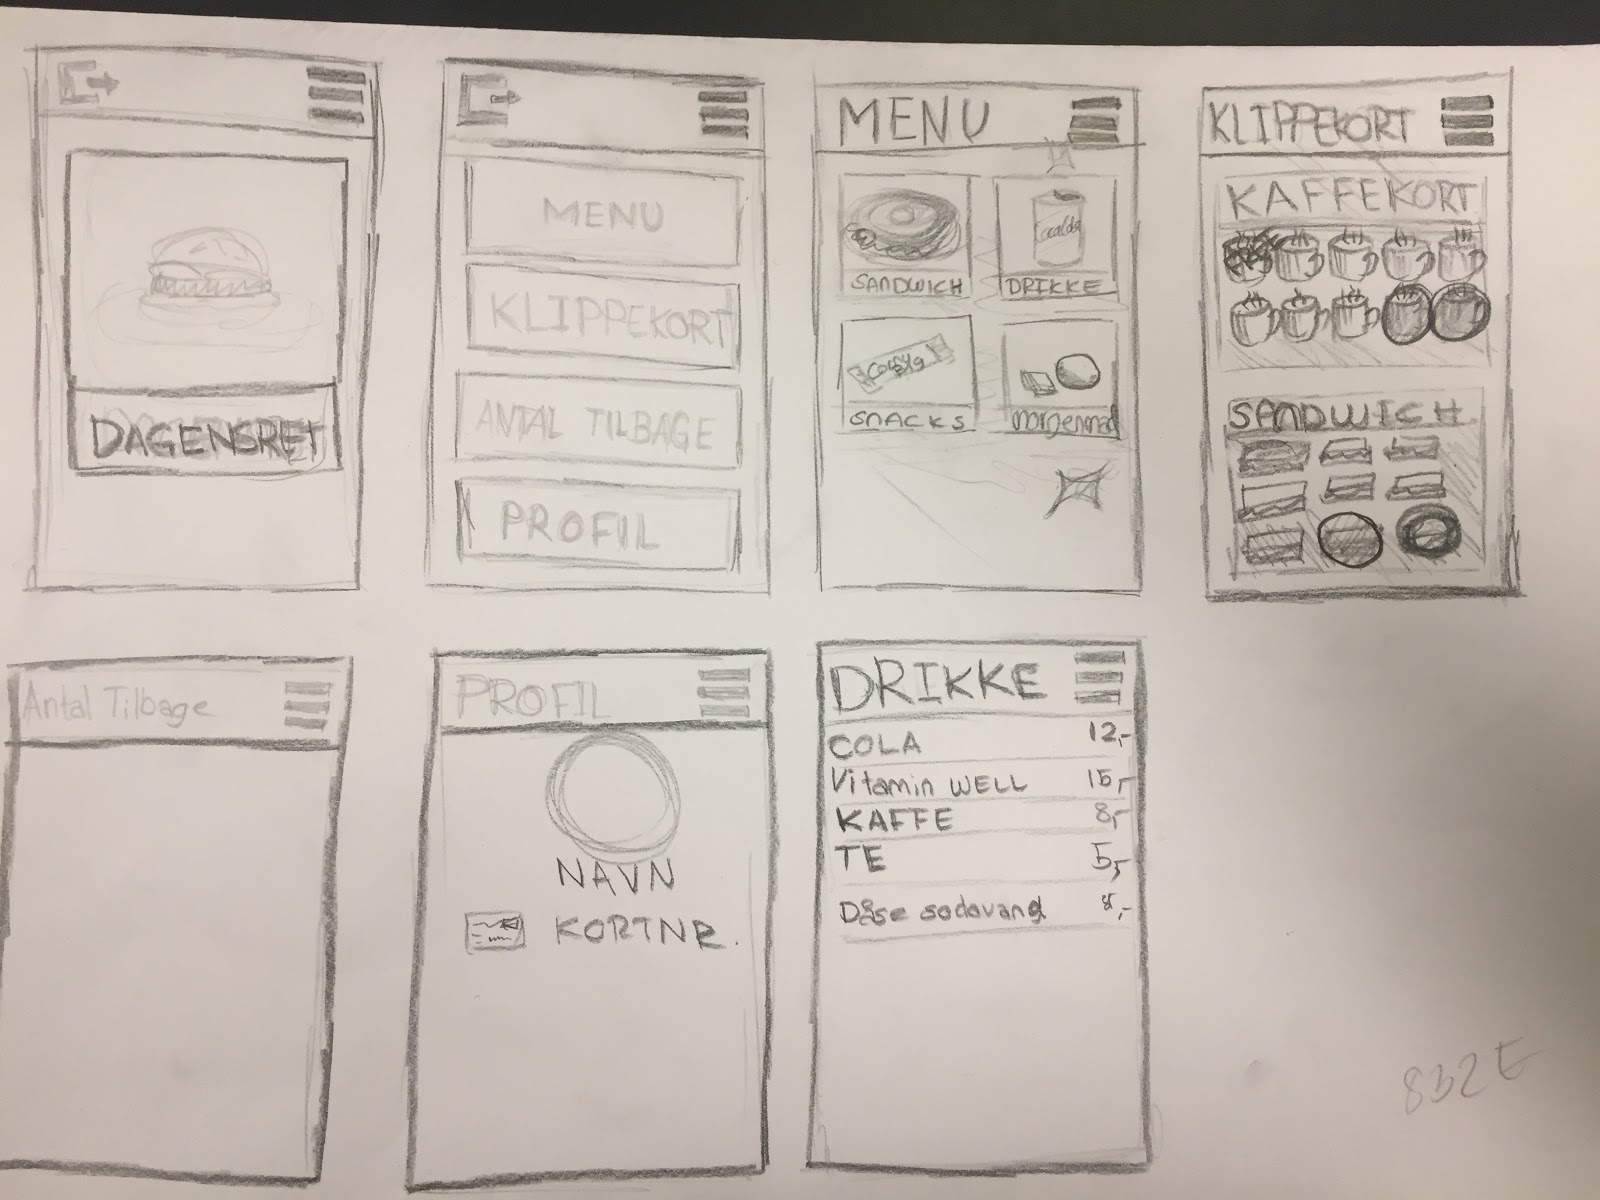 DAGENSRET
MENU
KLIPPEKORT
ANTAL TILBAGE
PROFIL
MENU
SANDWICH
DRIKKE
SNACKS
morgenmad
KLIPPEKORT
KAFFEKORT
SANDWICH
Antal Tilbage
PROFIL
NAVN
KORTNR.
DRIKKE
COLA 12,-
Vitamin WELL 15,-
KAFFE 8,-
TE 5,-
Dåse sodavand 8,-
832E